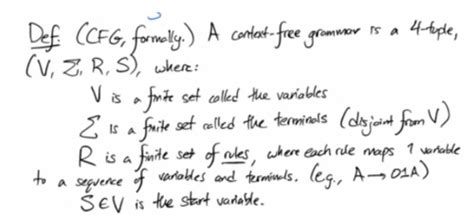 Def: (CFG, formally.) A context-free grammar is a 4-tuple,
(V, Σ, R, S), where:
V is a finite set called the variables
Σ is a finite set called the terminals (disjoint from V)
R is a finite set of rules, where each rule maps 1 variable
to a sequence of variables and terminals. (e.g., A → 01A)
S∈V is the start variable.